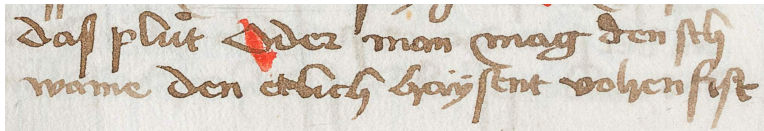 das plut Oder man mag den sch
wame den etlich haÿsent vohenfist